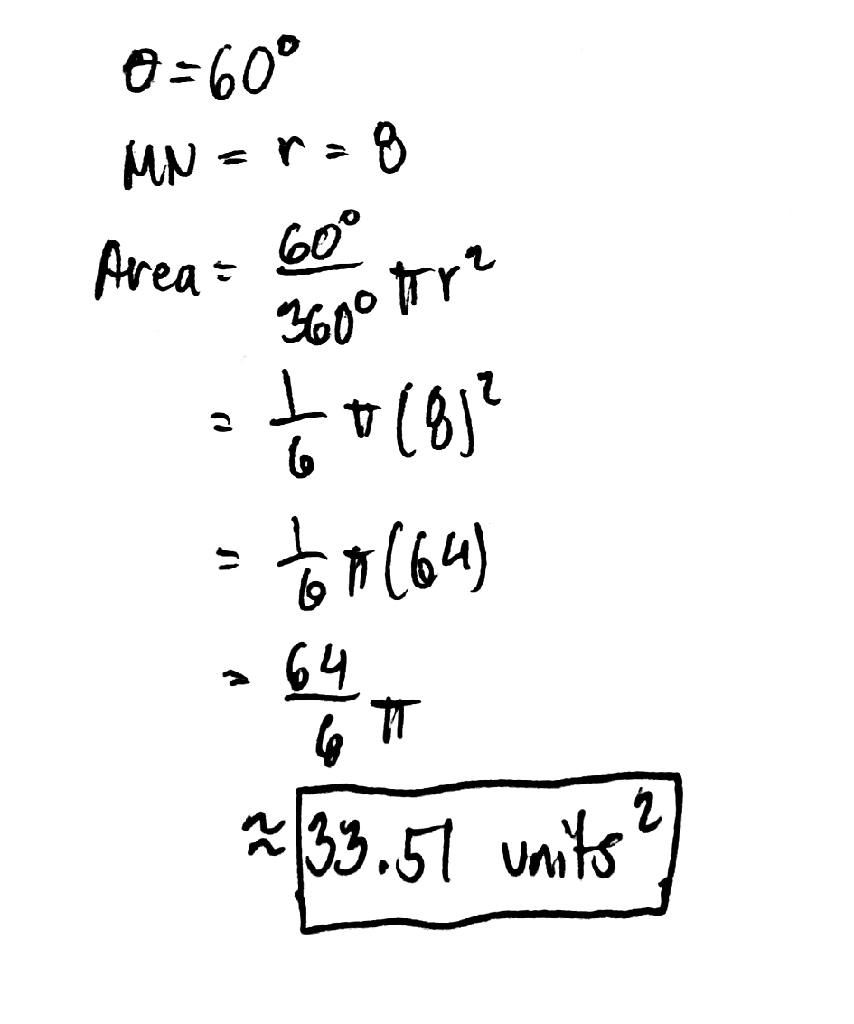 θ = 60°
MN = r = 8
Area = 60°/360° πr²
= 1/6 π(8)²
= 1/6 π(64)
= 64/6 π
≈ 33.51 units²